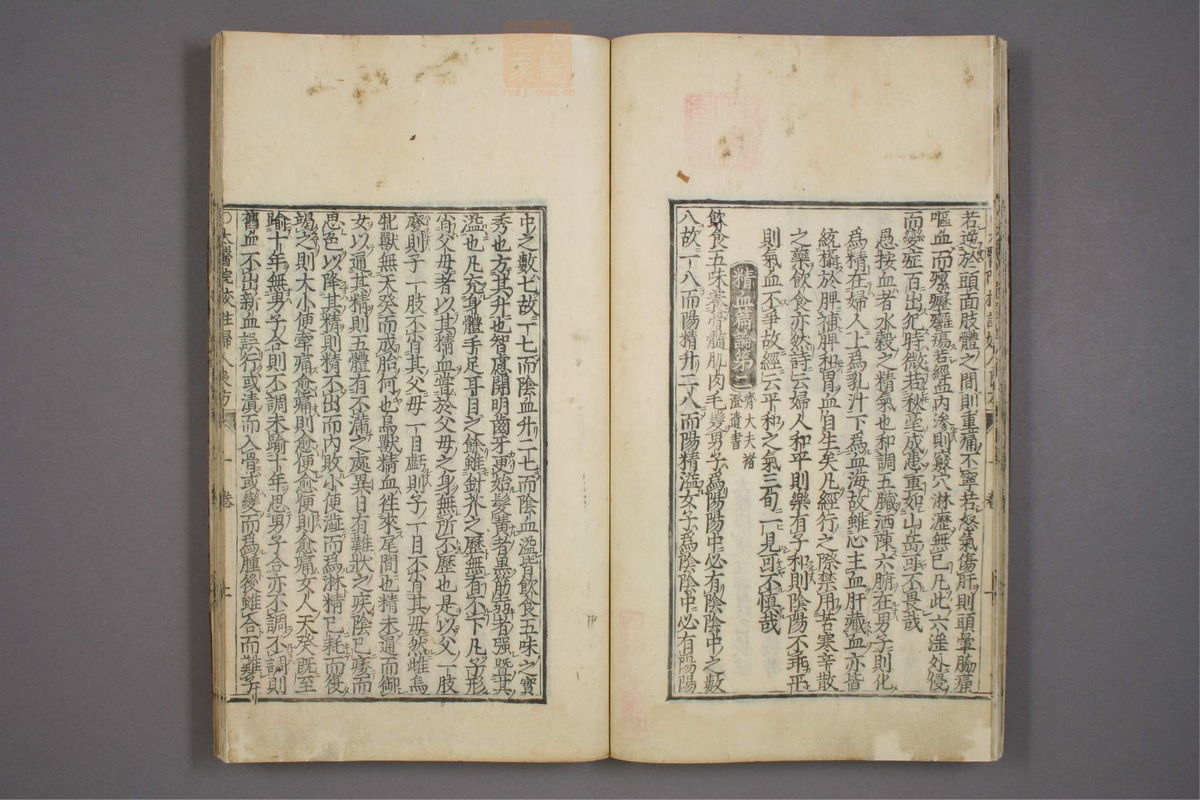 若逆於頭面肢體之間則重痛不寧若怒氣傷肝則頭暈脇痛
嘔血而瘰癧癰瘍若經血內滲則竅穴淋瀝無已凡此六淫外侵
而變症百出犯時微若秋毫成患重如山岳可不畏哉
愚按血者水穀之精氣也和調五臟洒陳六腑在男子則化
為精在婦人上為乳汁下為血海故雖心主血肝藏血亦皆
統攝於脾補脾和胃血自生矣凡經行之際禁用苦寒辛散
之藥飲食亦然詩云婦人和平則樂有子和則陰陽不乖平
則氣血不爭故經云平和之氣三旬一見可不慎哉
精血篇論第二 齊大夫褚澄遺書
飲食五味養骨髓肌肉毛髮男子為陽陽中必有陰陰中之數
八故一八而陽精升二八而陽精溢女子為陰陰中必有陽陽
中之數七故一七而陰血升二七而陰血溢皆飲食五味之實
秀也方其升也智慮開明齒牙更始髮黃者黑筋弱者强曁其
溢也凡充身體手足耳目之餘雖針芥之歷無有不下凡子形
肖父母者以其精血嘗於父母之身無所不歷也是以父一肢
廢則子一肢不肖其父母一目虧則子一目不肖其母然雌鳥
牝獸無天癸而成胎何也鳥獸精血徃來尾間也精未通而御
女以通其精則五體有不滿之處異日有難狀之疾陰已痿而
思色以降其精則精不出而內敗小便澁而為淋精已耗而復
竭之則大小便牽痛愈痛則愈便愈便則愈痛女人天癸既至
踰十年無男子合則不調未踰十年思男子合亦不調不調則
舊血不出新血誤行或漬而入骨或變而為腫後雖合而難子
太醫院校註婦人良方 一卷